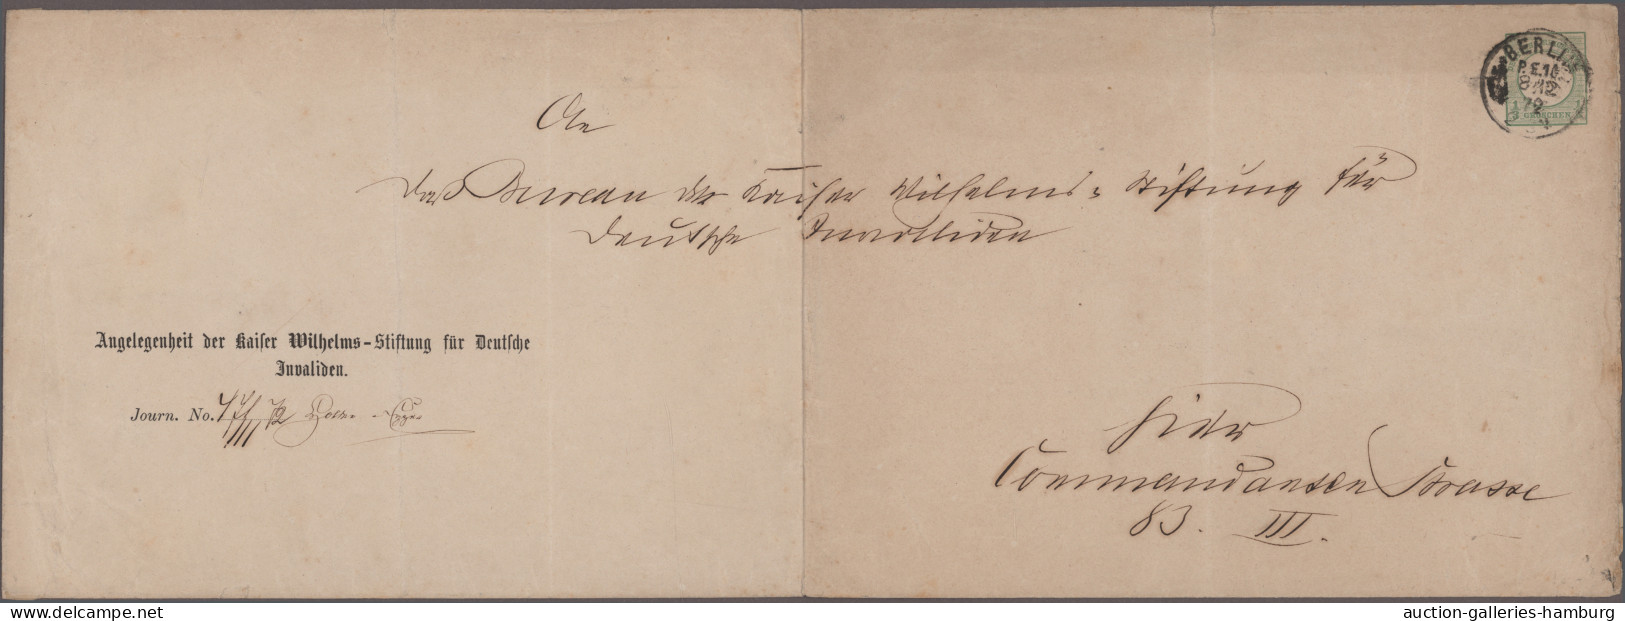 BERLIN
P.E.14
8 12
72
1/3 GROSCHEN 1/3
An
das Bureau der Kaiser Wilhelms-Stiftung für
deutsche Invaliden
Angelegenheit der Kaiser Wilhelms-Stiftung für Deutsche
Invaliden.
Journ. No.
hier
Commandanten Strasse
83. III.
www.delcampe.net
auction-galleries-hamburg